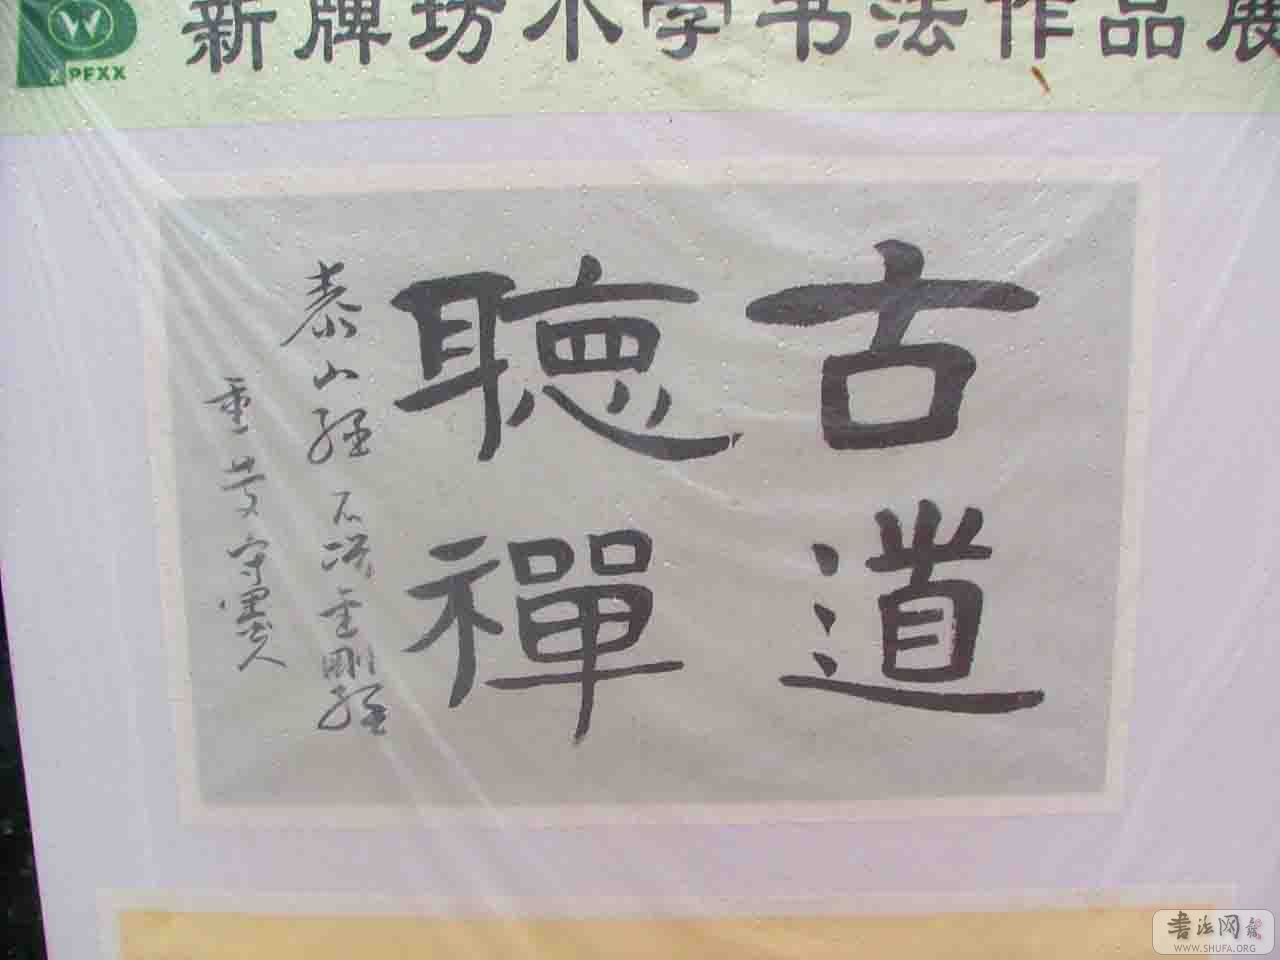 新牌坊小学书法作品展
XPFXX
古道
聽禪
泰山經石峪金剛經
重慶守墨人
书法网
WWW.SHUFA.ORG